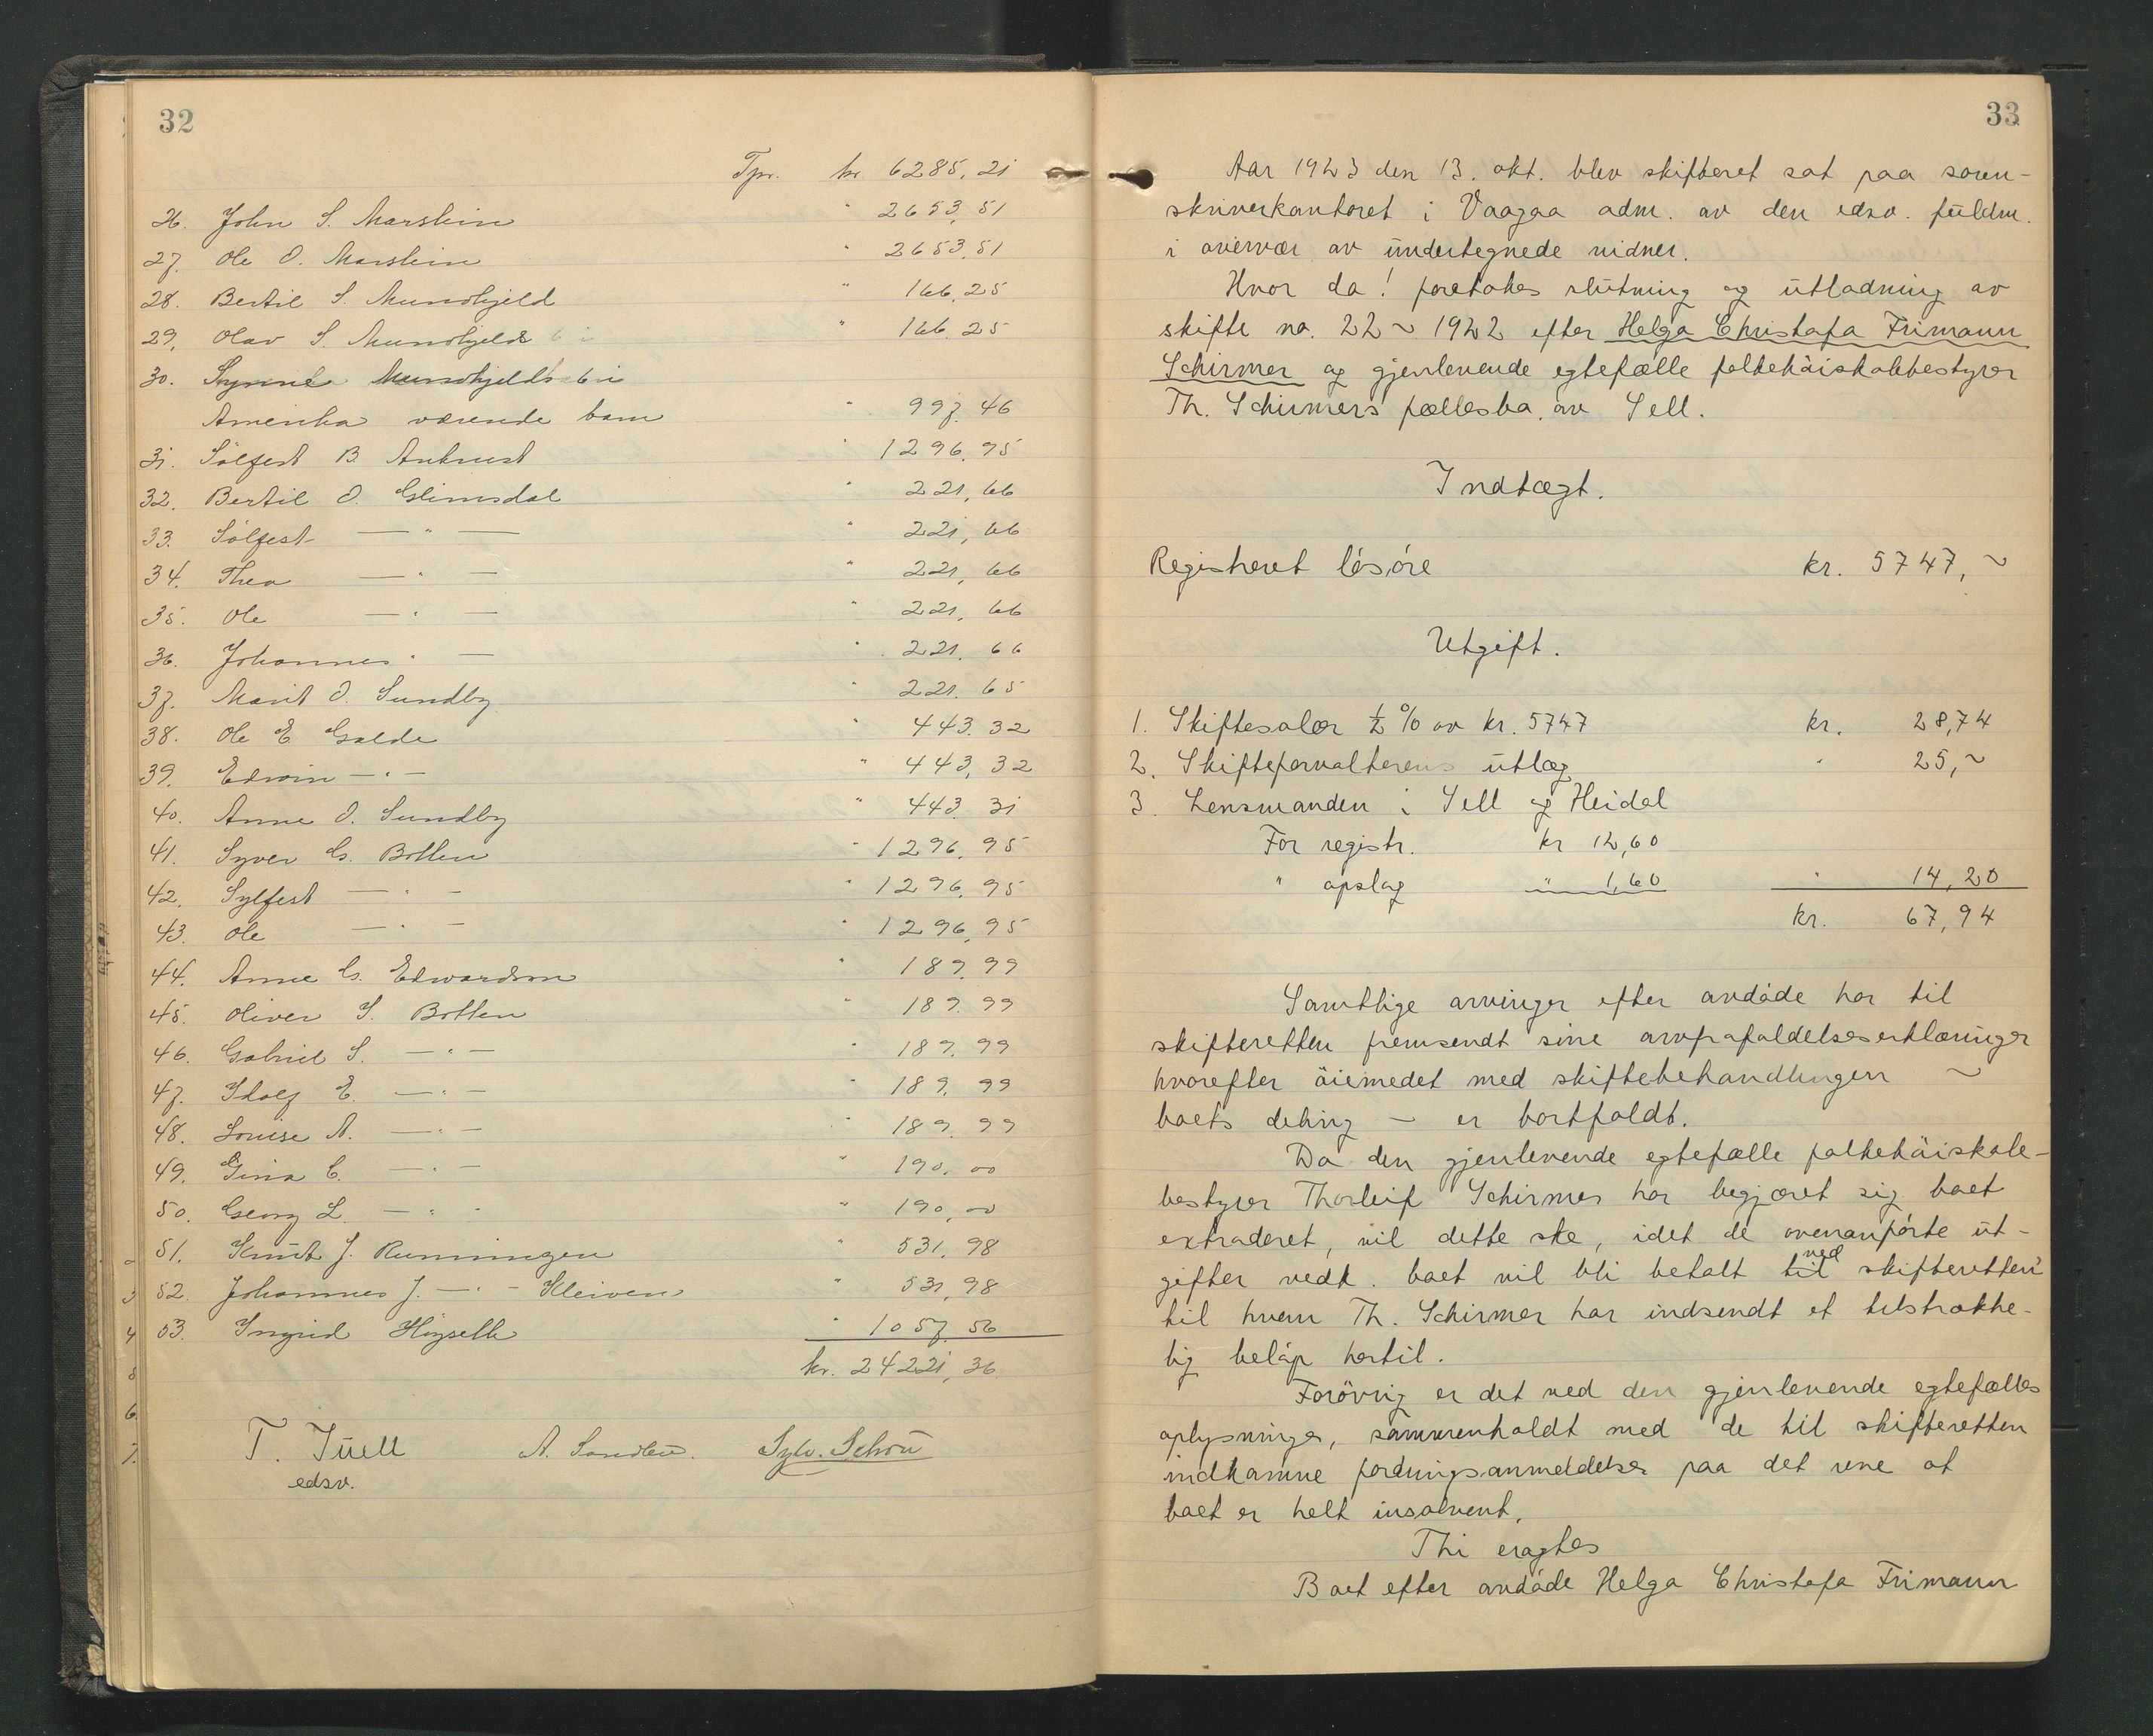 32
Tpr. kr 6285,21
26. John S. Marstein " 2653,51
27. Ole O. Marstein " 2653,51
28. Bertil S. Mundhjeld " 166,25
29. Olav S. Mundhjeld " 166,25
30. Synne Mundhjelds i
Amerika værende barn " 997,46
31. Sölfest B. " 1296,95
32. Bertil O. Glimsdal " 221,66
33. Sölfest — " — " 221,66
34. Thea — " — " 221,66
35. Ole — " — " 221,66
36. Johannes " — " 221,66
37. Marit O. Sundby " 221,65
38. Ole E. Galde " 443,32
39. Edwin — " — " 443,32
40. Anne O. Sundby " 443,31
41. Syver G. Botten " 1296,95
42. Sylfest — " — " 1296,95
43. Ole — " — " 1296,95
44. Anne G. Edwardson " 189,99
45. Oliver S. Botten " 189,99
46. Gabriel S. — " — " 189,99
47. E. — " — " 189,99
48. Louise A. — " — " 189,99
49. Gina C. — " — " 190,00
50. Georg L. — " — " 190,00
51. Knut J. Runningen " 531,98
52. Johannes J. — " — Kleiven " 531,98
53. Ingrid " 1057,56
kr. 24221,36
T. Juell A. Sandbu. Sylv. Schou
edsv.
33
Aar 1923 den 13. okt. blev skifteret sat paa soren-
skriverkontoret i Vaagaa adm. av den edsv. fuldm.
i overvær av undertegnede vidner.
Hvor da! foretokes slutning og utlodning av
skifte no. 22 ~ 1922 efter Helga Christofa Frimann
Schirmer og gjenlevende egtefælle folkehöiskolebestyrer
Th. Schirmers fællesbo av Sell.
Indtægt.
Registreret lösöre kr. 5747,~
Utgift.
1. Skiftesalær ½ % av kr. 5747 kr. 28,74
2. Skifteforvalterens utlæg " 25,~
3 Lensmanden i Sell og Heidal
For registr. kr 12,60
" opslag " 1,60 " 14,20
kr. 67,94
Samtlige arvinger efter avdöde har til
skifteretten fremsendt sine arvefrafaldelseserklæringer
hvorefter öiemedet med skiftebehandlingen ~
boets deling ~ er bortfaldt.
Da den gjenlevende egtefælle folkehöiskole-
bestyrer Thorleif Schirmer har begjæret sig boet
extraderet, vil dette ske, idet de ovenanförte ut-
gifter vedk. boet vil bli betalt til ved skifteretten
til hvem Th. Schirmer har indsendt et tilstrække-
lig belöp hertil.
Forövrig er det ved den gjenlevende egtefælles
oplysninger, sammenholdt med de til skifteretten
indkomne fordringsanmeldelser paa det rene at
boet er helt insolvent.
Thi eragtes
Boet efter avdöde Helga Christofa Frimann